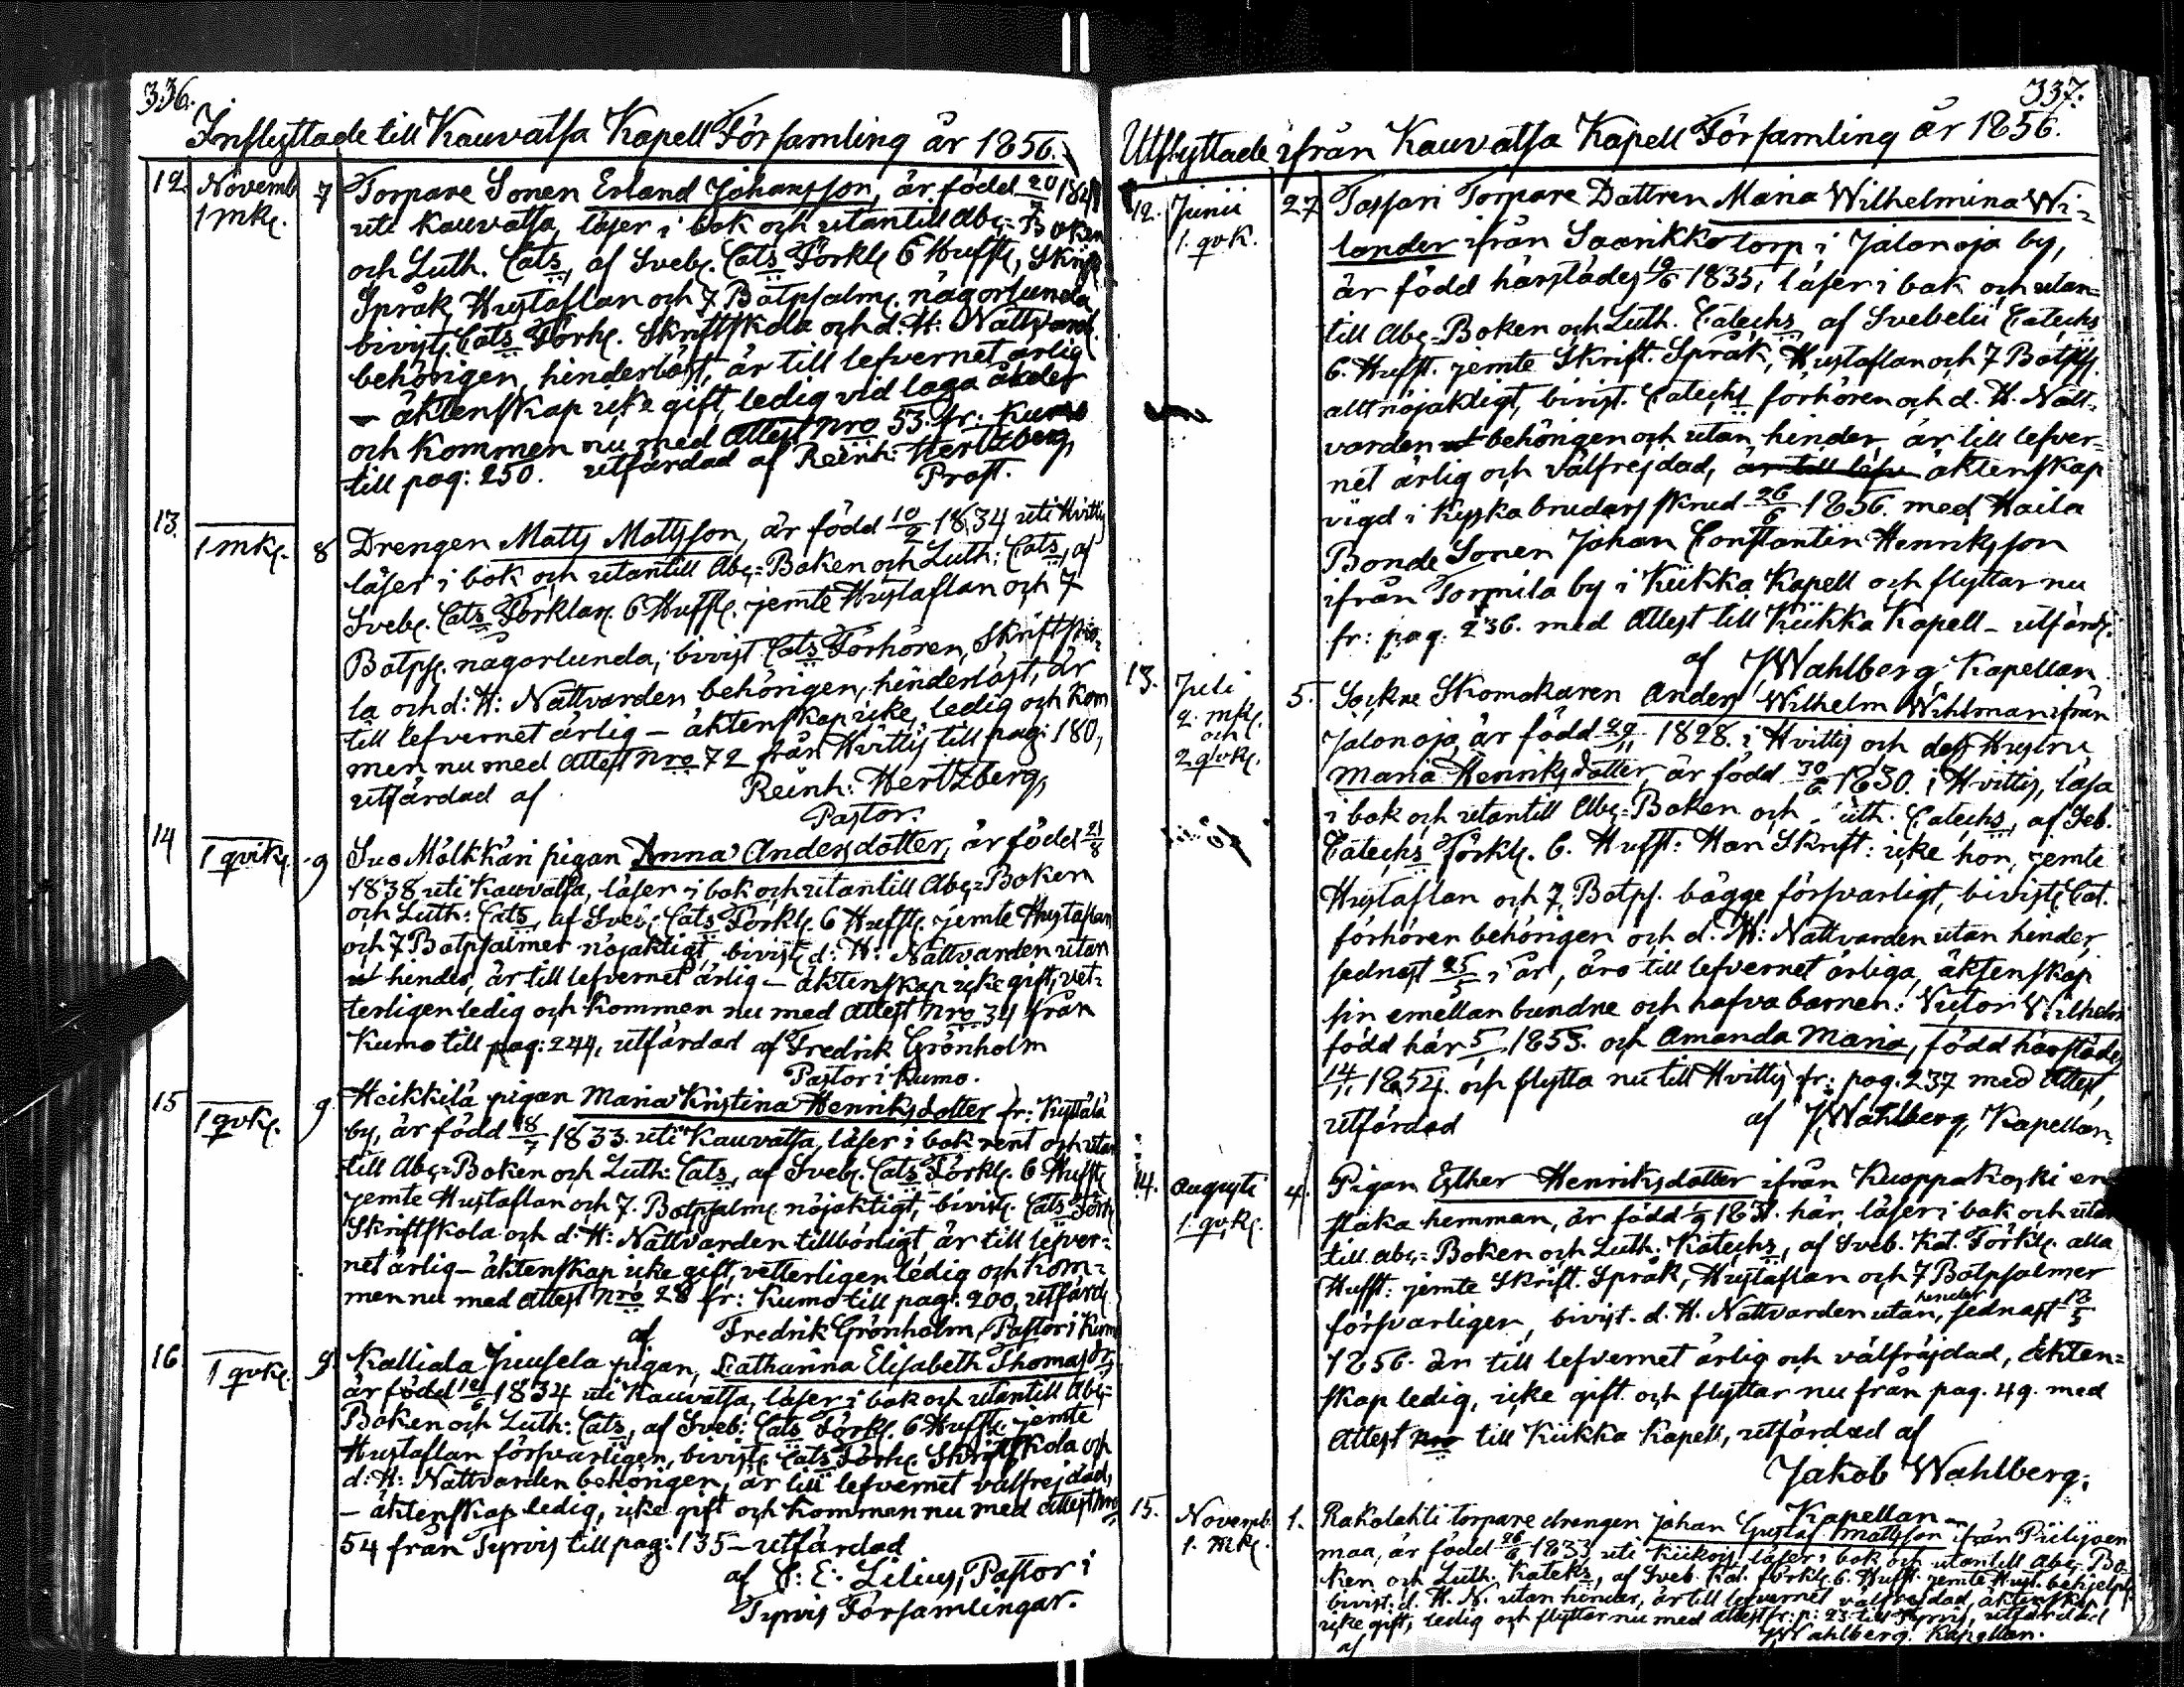 336.
Inflyttade till Kauvatsa Kapell Församling år 1856.
12. Novemb 7 Torpare Sonen Erland Johansson, är född 20
1 mk. uti Kauvatsa, läser i bok och utantill Abc-Boken
och Luth. Cats, af Sveb. Cats Förkl. 6 Hufst,
Språk, Hustaflan och 7 Botpsalm. någorlunda
bivist. Cats Förh. Skriftskola och d: H: Nattvard.
behörigen, hinderlöst, är till lefvernet ärlig
– äktenskap icke gift, ledig vid laga ålder
och kommer nu med Attest Nro 53. fr: Kumo
till pag: 250. utfärdad af Reinh: Hertzberg,
Prost.
13. 1 mk. 8 Drengen Matts Mattsson, är född 10/2 1834 uti Hvittis
läser i bok och utantill Abc-Boken och Luth: Cats, af
Sveb. Cats Förklar. 6 Hufst. jemte Hustaflan och 7
Botps. någorlunda, bivist Cats Förhören, Skriftsko-
la och d: H: Nattvarden behörigen, hinderlöst, är
till lefvernet ärlig – äktenskap icke, ledig och kom
mer nu med Attest Nro 72 från Hvittis till pag: 180,
utfärdad af Reinh: Hertzberg,
Pastor.
14 1 qvik. 9 Suo Mälkkäri pigan Anna Andersdotter, är född 21/8
1838 uti Kauvatsa, läser i bok och utantill Abc-Boken
och Luth: Cats, af Sveb. Cats Förkl. 6 Hufst. jemte Hustaflan
och 7 Botpsalmer nöjaktigt, bivist d: H: Nattvarden utan
hinder, är till lefvernet ärlig – äktenskap icke gift, vet-
terligen ledig och kommer nu med Attest Nro 34 från
Kumo till pag: 244, utfärdad af Fredrik Grönholm
Pastor i Kumo.
15 1 qvk. 9 Heikkilä pigan Maria Kristina Henriksdotter fr: Kyttälä
by, är född 18/7 1833. uti Kauvatsa, läser i bok rent och utan
till Abc-Boken och Luth: Cats, af Sveb. Cats Förkl. 6 Hufst.
jemte Hustaflan och 7. Botpsalm. nöjaktigt, bivist. Cats Förh.
Skriftskola och d: H: Nattvarden tillbörligt, är till lefver-
net ärlig – äktenskap icke gift, vetterligen ledig och kom-
mer nu med Attest Nro 28 fr: Kumo till pag: 200, utfärd.
af Fredrik Grönholm, Pastor i Kumo
16. 1 qvk. 9 Kalliala Juusela pigan, Catharina Elisabeth Thomasdr,
är född 12/6 1834 uti Kauvatsa, läser i bok och utantill Abc-
Boken och Luth: Cats, af Sveb: Cats Förkl. 6 Hufst. jemte
Hustaflan försvarligen, bivist. Cats Förh. Skriftskola och
d: H: Nattvarden behörigen, är till lefvernet välfrejdad,
– äktenskap ledig, icke gift och kommer nu med Attest Nro
54 från Tyrvis till pag: 135 – utfärdad
af C: E: Lilius, Pastor i
Tyrvis Församlingar.
337.
Utflyttade ifrån Kauvatsa Kapell Församling år 1856.
12. Junii 27 Torpare Dottren Maria Wilhelmina Wi-
1. qvk. lander ifrån Saarikko torp i Jalonoja by,
är född härstädes 19/6 1835, läser i bok och utan-
till Abc-Boken och Luth. Catechs, af Svebelii Catechs
6. Hufst. jemte Skrift. Språk, Hustaflan och 7 Botps.
allt nöjaktigt, bivist. Catechs förhören och d. H. Natt-
varden behörigen och utan hinder, är till lefver-
net ärlig och välfrejdad, är till lefv äktenskap
vigd i kyska brudars skrud 26/6 1856. med Haila
Bonde Sonen Johan Constantin Henriksson
ifrån Tormila by i Kiikka Kapell och flyttar nu
fr: pag. 236. med Attest till Kiikka Kapell – utfärd:
af J. Wahlberg, Kapellan.
13. Juli 5. Sockne Skomakaren Anders Wilhelm Wihlman ifrån
2. mk. Jalonoja, är född 29/11 1828. i Hvittis och dess Hustru,
och Maria Henriksdotter, är född 30/6 1830. i Hvittis, läsa
2 qvk. i bok och utantill Abc-Boken och Luth. Catechs, af Sveb.
Catechs Förkl. 6. Hufst: Han Skrift: icke hon, jemte
Hustaflan och 7 Botps. bägge försvarligt, bivist. Cat.
förhören behörigen och d. H: Nattvarden utan hinder,
sednast 25/5 i år, äro till lefvernet ärliga, äktenskap
sin emellan bundne och hafva barnen: Victor Wilhelm
född här 5/1 1853. och Amanda Maria, född härstädes
14/1 1854. och flytta nu till Hvittis fr: pag. 237 med Attest,
utfärdad af J. Wahlberg, Kapellan.
14. Augusti 4. Pigan Esther Henriksdotter ifrån Kuoppakoski en-
1. qvk. staka hemman, är född här, läser i bok och utan
till abc-Boken och Luth. Katechs, af Sveb. Kat. Förkl. alla
Hufst: jemte Skrift. Språk, Hustaflan och 7 Botpsalmer
försvarligen, bivist. d. H. Nattvarden utan hinder, sednast 18/5
1856. är till lefvernet ärlig och välfräjdad, äkten-
skap ledig, icke gift och flyttar nu från pag. 49. med
Attest nro till Kiikka Kapell, utfärdad af
Jakob Wahlberg,
Kapellan
15. Novemb. 1. Rakolahti torpare drengen Johan Gustaf Mattsson från Piilijoen
1. mk. maa, är född 26 1833 uti Kiikois, läser i bok och utantill abc-Bo-
ken och Luth. Kateks, af Sveb. Kat. förkl. 6. Hufst. jemte Hust. behjelpl.
bivist. d. H. N. utan hinder, är till lefvernet välfrejdad, äktenskap
icke gift, ledig och flyttar nu med attest fr: p: 23 till Tyrvis, utfärdad
af J Wahlberg. Kapellan.